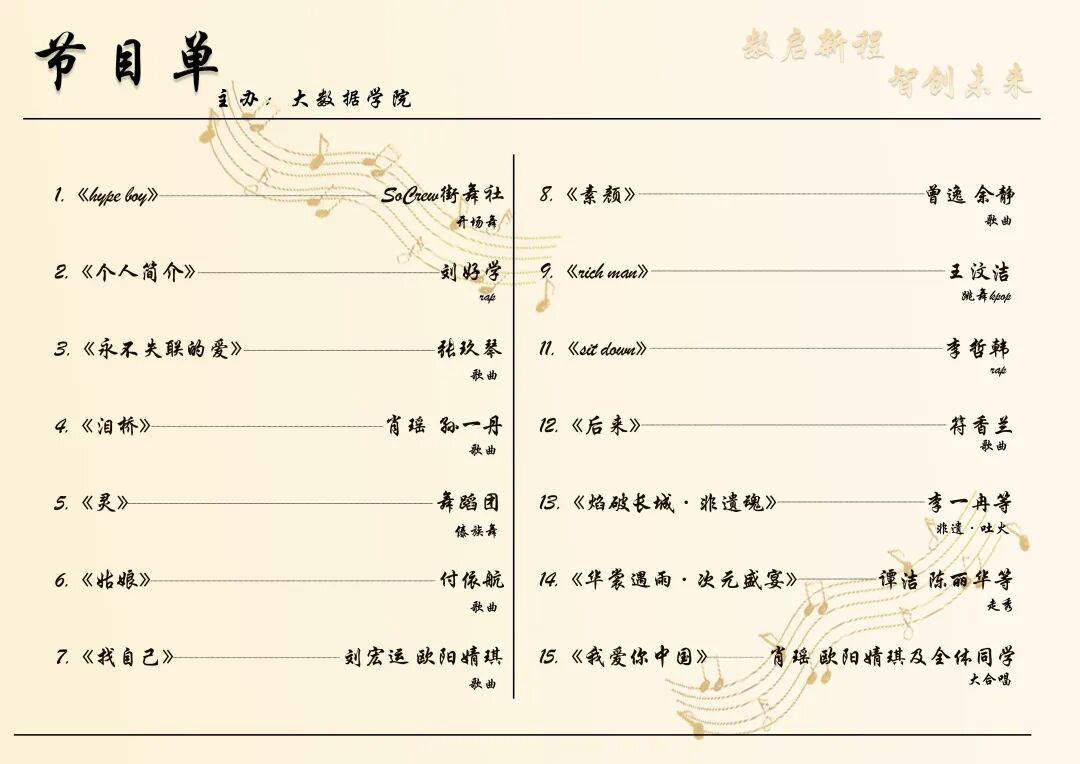 节目单
主办：大数据学院
数启新程
智创未来
1.《hype boy》SoCrew街舞社
开场舞
2.《个人简介》刘好学
rap
3.《永不失联的爱》张玖琴
歌曲
4.《泪桥》肖瑶 孙一丹
歌曲
5.《灵》舞蹈团
傣族舞
6.《姑娘》付依航
歌曲
7.《找自己》刘宏运 欧阳婧琪
歌曲
8.《素颜》曾逸 余静
歌曲
9.《rich man》王汶洁
跳舞kpop
11.《sit down》李哲韩
rap
12.《后来》符香兰
歌曲
13.《焰破长城·非遗魂》李一冉等
非遗·吐火
14.《华裳遇雨·次元盛宴》谭洁 陈丽华等
走秀
15.《我爱你中国》肖瑶 欧阳婧琪及全体同学
大合唱